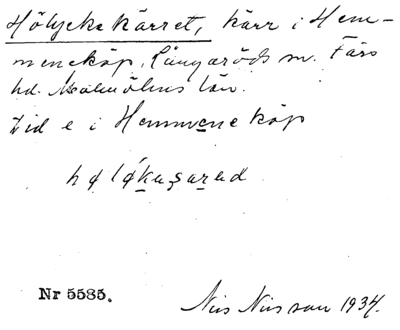 Hölyckekärret, kärr i Hem-
meneköp, Långaröds sn. Färs
hd. Malmöhus län.
Vid e i Hemmeneköp
Nr 5585. Nils Nilsson 1934.